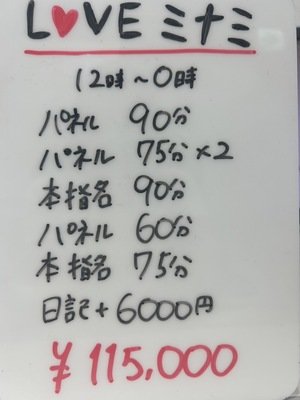 L♥VE ミナミ
12時〜0時
パネル 90分
パネル 75分×2
本指名 90分
パネル 60分
本指名 75分
日記+6000円
¥115,000